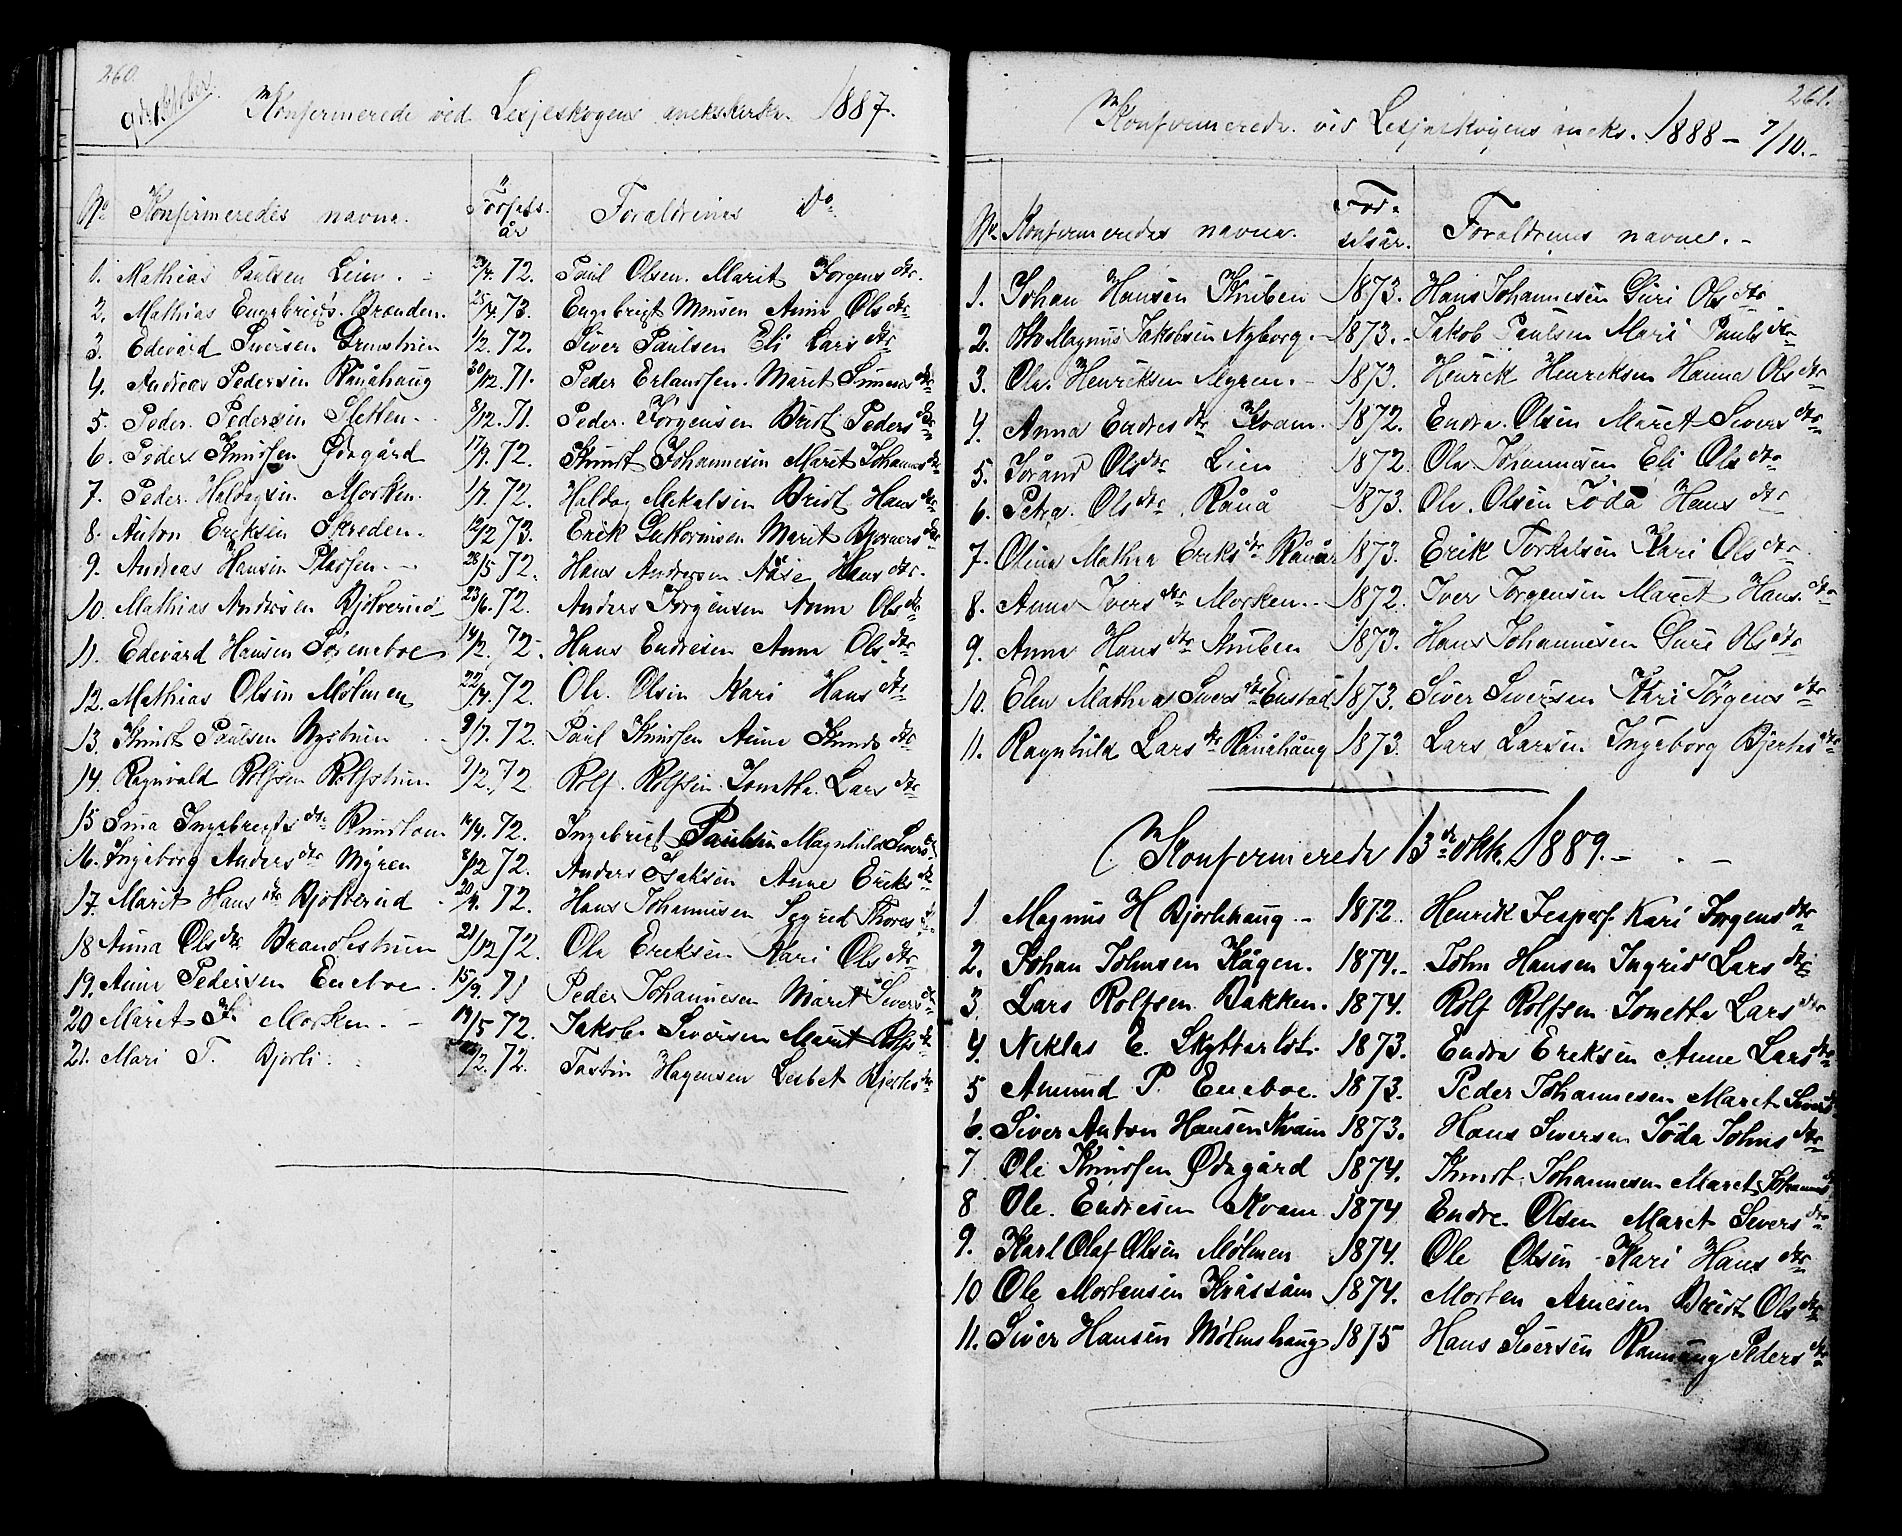 260.
9de Oktober.
Konfirmerede ved Lesjeskogens anekskirke. 1887.
No Konfirmeredes navne. Födsels. år Foraldrenes Do
1. Mathias Paulsen Lien. 72. Paul Olsen. Marit Jörgensdtr.
2. Mathias Engebrigts. Brænden. 25/4 73. Engebrigt Monsen Anne Olsdtr
3. Edevard Siversen Grønstuen 1/2. 72. Siver Paulsen Eli Larsdtr
4. Andreas Pedersen Rånåhaug 30/12. 71. Peder Erlandsen. Marit Simensdtr
5. Peder Pedersen Sletten. 8/12. 71. Peder Jörgensen Brit Pedersdtr
6. Peder Knudsen Ødegård 17/4. 72. Knud Johannesen Marit Johannesdtr
7. Peder Haldogsen Morken. 1/7. 72. Haldog Mikalsen Brit Hansdtr
8. Anton Eriksen Skreden. 12/2 73. Erik Guttormsen Marit Bjornersdtr
9. Andreas Hansen Pladsen. 28/5 72. Hans Andersen Åse Hansdtr.
10. Mathias Andersen Bjölverud 23/6. 72. Anders Jörgensen Anne Olsdtr
11. Edevard Hansen Töreneboe 14/2. 72. Hans Endresen Anne Olsdtr
12. Mathias Olsen Mølmen 22/4. 72. Ole Olsen Kari Hansdtr
13. Knud Paulsen Nystuen 9/7. 72. Paul Knudsen Anne Knudsdtr
14. Ragnvald Rolfsen Rolfstuen 9/2. 72. Rolf Rolfsen Jonetta Larsdtr
15 Sina Ingebrigtsdtr 14/4. 72. Ingebrigt Paulsen Magnhild Siversdtr
16. Ingeborg Andersdtr Myren 8/12 72. Anders Isaksen Anne Eriksdtr
17. Marit Hansdtr Bjölverud 20/4. 72. Hans Johannesen Sigrid Thoresdtr
18 Anna Olsdtr Brandlistuen 21/12 72. Ole Eriksen Kari Olsdtr
19. Anne Pedersen Eneboe 15/9. 71 Peder Johannesen Marit Siversdtr
20 Marit J. Morken. 19/5 72. Jakob Siversen Marit Olsdtr
21. Mari T. Bjorli /2. 72. Tosten Hagensen Lisbet Bjertesdtr
261.
Konfirmerede ved Lesjeskogens aneks. 1888 – 7/10.
No. Konfirmeredes navne. Fødselsår. Foraldrenes navne.
1. Johan Hansen Knuben 1873. Hans Johannesen Guri Olsdtr
2. Magnus Jakobsen Nyborg. 1873. Jakob Paulsen Mari Paulsdtr
3. Ole Henriksen Myren. 1873. Henrik Henriksen Hanna Olsdtr
4. Anna Endresdtr Kvam. 1872. Endre Olsen Maret Siversdtr
5. Jöränd Olsdtr Lien 1872. Ole Johannesen Eli Olsdtr
6. Petra Olsdtr Rånå 1873. Ole Olsen Jöda Hansdtr
7. Olina Mathea Eriksdtr Rånå 1873. Erik Torkelsen Kari Olsdtr
8. Anne Iversdtr Morken. 1872. Iver Jorgensen Maret Hansdtr
9. Anne Hansdtr Knuben 1873. Hans Johannesen Guri Olsdtr
10. Elen Mathea Siversdtr Enstad 1873. Siver Siversen Kari Jörgensdtr
11. Ragnhild Larsdtr Rånåhaug 1873. Lars Larsen Ingeborg Bjertesdtr
Konfirmerede 13de Okt. 1889.
1 Magnus H Bjorlihaug 1872. Henrik Jespers. Kari Jorgensdtr
2. Johan Johnsen Kågen. 1874. John Hansen Ingrid Larsdtr
3. Lars Rolfsen Bakken. 1874. Rolf Rolfsen Jonetta Larsdtr
4. Niklas E. Skytterlöt. 1873. Endre Eriksen Anne Larsdtr
5 Amund P. Eneboe. 1873. Peder Johannesen Maret Siversdtr
6. Siver Anton Hansen Kvam 1873. Hans Siversen Jöda Johnsdtr
7 Ole Knudsen Ødegård 1874. Knud Johannesen Maret Johannesdtr
8 Ole Endresen Kvam 1874 Endre Olsen Maret Siversdtr
9. Karl Olaf Olsen Mølmen 1874. Ole Olsen Kari Hansdtr
10 Ole Mortensen Kråsåm 1874. Morten Arnesen Brit Olsdtr
11. Siver Hansen Mølmshaug 1875 Hans Siversen Rannaug Pedersdtr